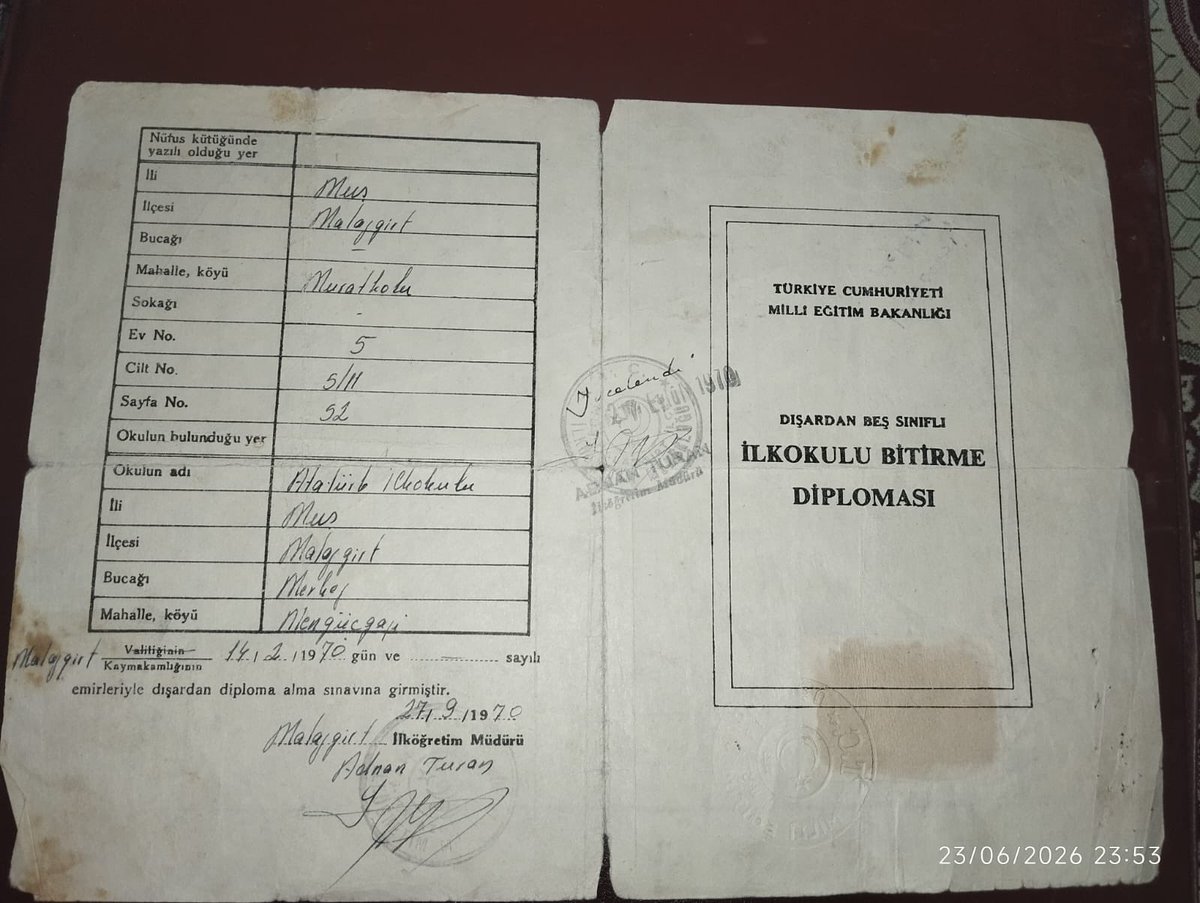 Nüfus kütüğünde
yazılı olduğu yer
İli Muş
İlçesi Malazgirt
Bucağı —
Mahalle, köyü Muratkolu
Sokağı -
Ev No. 5
Cilt No. 5/11
Sayfa No. 52
Okulun bulunduğu yer
Okulun adı Atatürk İlkokulu
İli Muş
İlçesi Malazgirt
Bucağı Merkez
Mahalle, köyü Mengücgazi
Malazgirt Valiliğinin
Kaymakamlığının 14/2/1970 gün ve — sayılı
emirleriyle dışardan diploma alma sınavına girmiştir.
27/9/1970
Malazgirt İlköğretim Müdürü
Adnan Turan
İncelendi
EYLÜL 1970
ADNAN TURAN
İlköğretim Müdürü
TÜRKİYE CUMHURİYETİ
MİLLİ EĞİTİM BAKANLIĞI
DIŞARDAN BEŞ SINIFLI
İLKOKULU BİTİRME
DİPLOMASI
23/06/2026 23:53